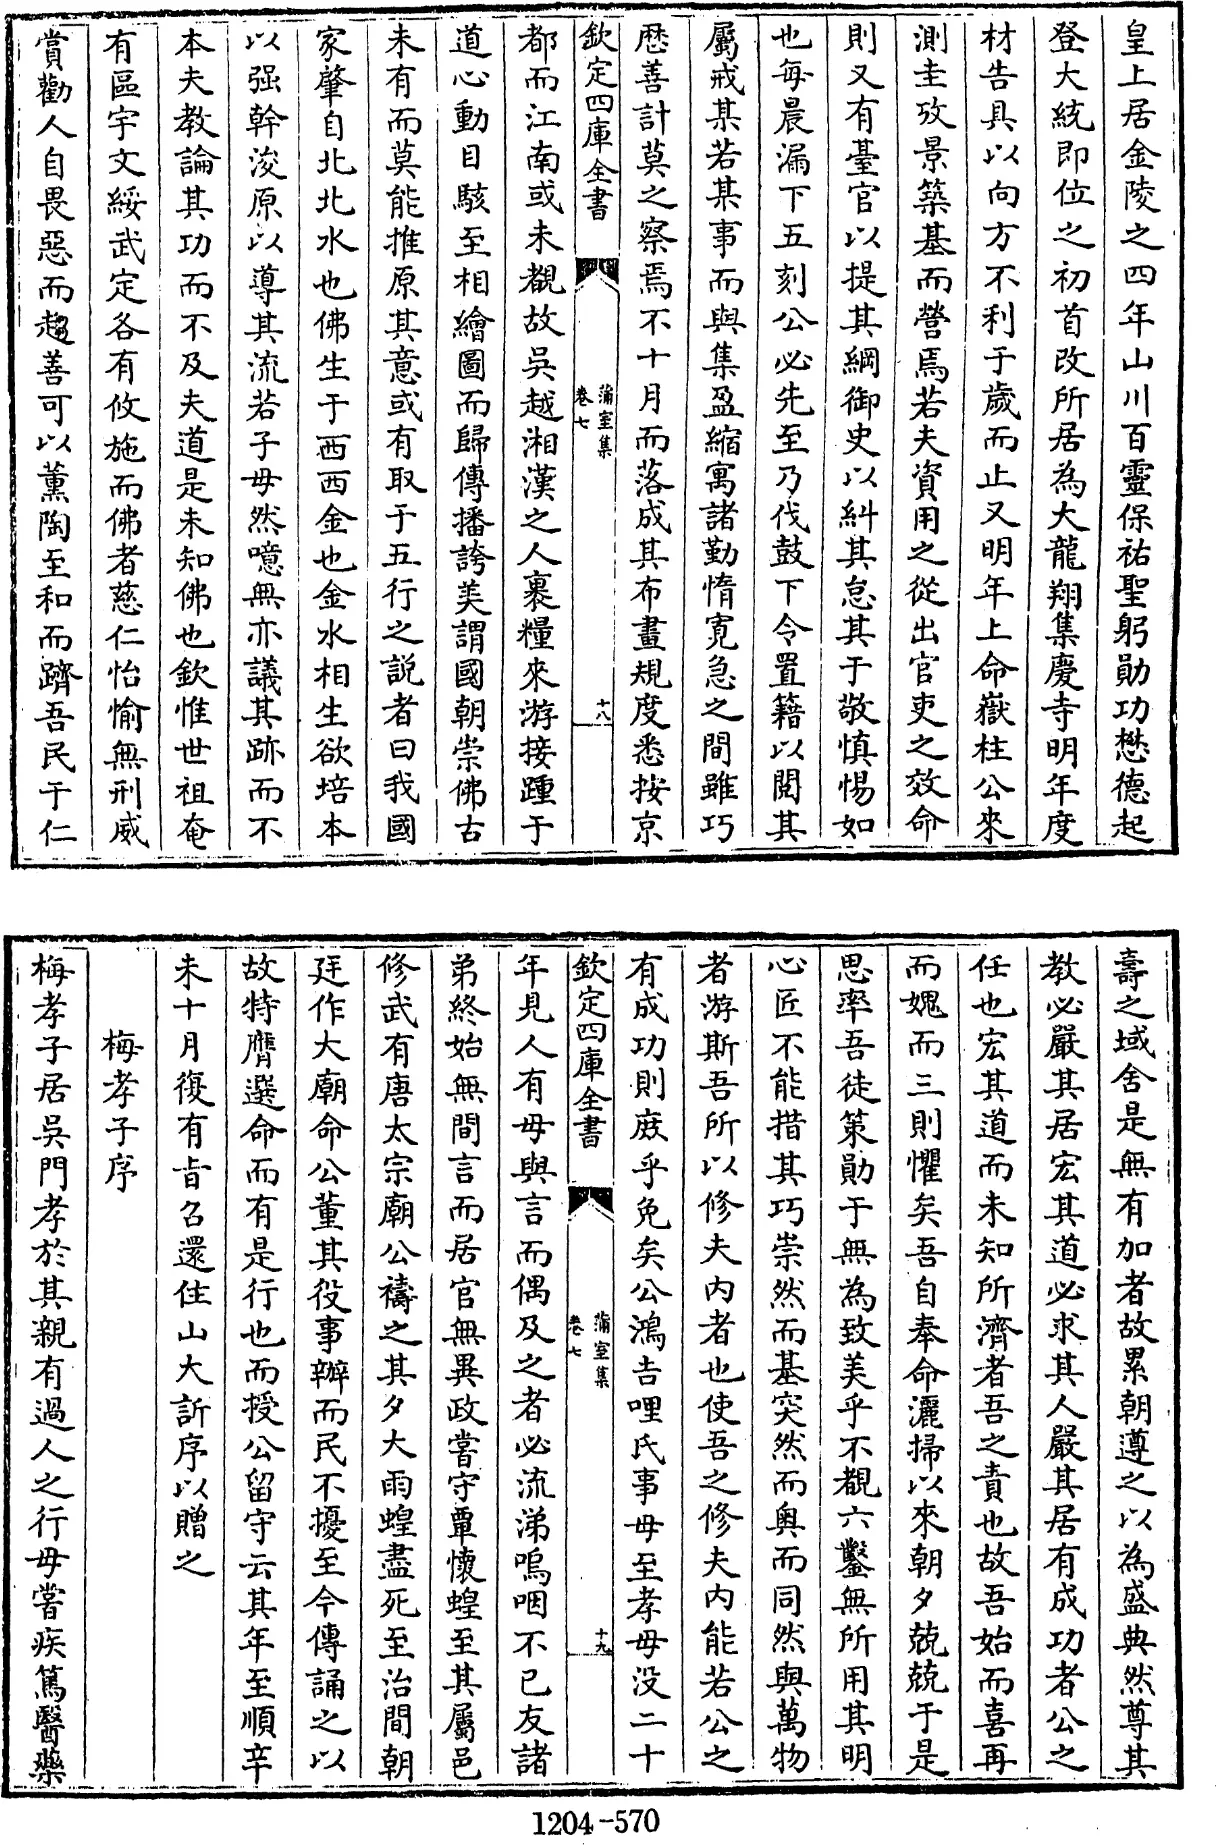 皇上居金陵之四年山川百靈保祐聖躬勛功懋德起
登大統即位之初首改所居為大龍翔集慶寺明年度
材告具以向方不利于歲而止又明年上命嶽柱公來
測圭攷景築基而營焉若夫資用之從出官吏之效命
則又有臺官以提其綱御史以糾其怠其于敬慎惕如
也每晨漏下五刻公必先至乃伐鼓下令置籍以閱其
屬戒某若某事而與集盈縮寓諸勤惰寛急之間雖巧
厯善計莫之察焉不十月而落成其布畫規度悉按京
欽定四庫全書
蒲室集
卷七
十八
都而江南或未覩故吳越湘漢之人裹糧來游接踵于
道心動目駭至相繪圖而歸傳播誇美謂國朝崇佛古
未有而莫能推原其意或有取于五行之説者曰我國
家肇自北北水也佛生于西西金也金水相生欲培本
以强幹浚原以導其流若子母然噫無亦議其跡而不
本夫教論其功而不及夫道是未知佛也欽惟世祖奄
有區宇文綏武定各有攸施而佛者慈仁怡愉無刑威
賞勸人自畏惡而趨善可以薰陶至和而躋吾民于仁
壽之域舍是無有加者故累朝遵之以為盛典然尊其
教必嚴其居宏其道必求其人嚴其居有成功者公之
任也宏其道而未知所濟者吾之責也故吾始而喜再
而媿而三則懼矣吾自奉命灑掃以來朝夕兢兢于是
思率吾徒策勛于無為致美乎不覩六鑿無所用其明
心匠不能措其巧崇然而基突然而奥而同然與萬物
者游斯吾所以修夫内者也使吾之修夫内能若公之
有成功則庶乎免矣公鴻吉哩氏事母至孝母没二十
欽定四庫全書
蒲室集
卷七
十九
年見人有母與言而偶及之者必流涕嗚咽不已友諸
弟終始無間言而居官無異政嘗守覃懷蝗至其屬邑
修武有唐太宗廟公禱之其夕大雨蝗盡死至治間朝
廷作大廟命公董其役事辦而民不擾至今傳誦之以
故特膺選命而有是行也而授公留守云其年至順辛
未十月復有旨召還住山大訢序以贈之
梅孝子序
梅孝子居吳門孝於其親有過人之行母嘗疾篤醫藥
1204-570